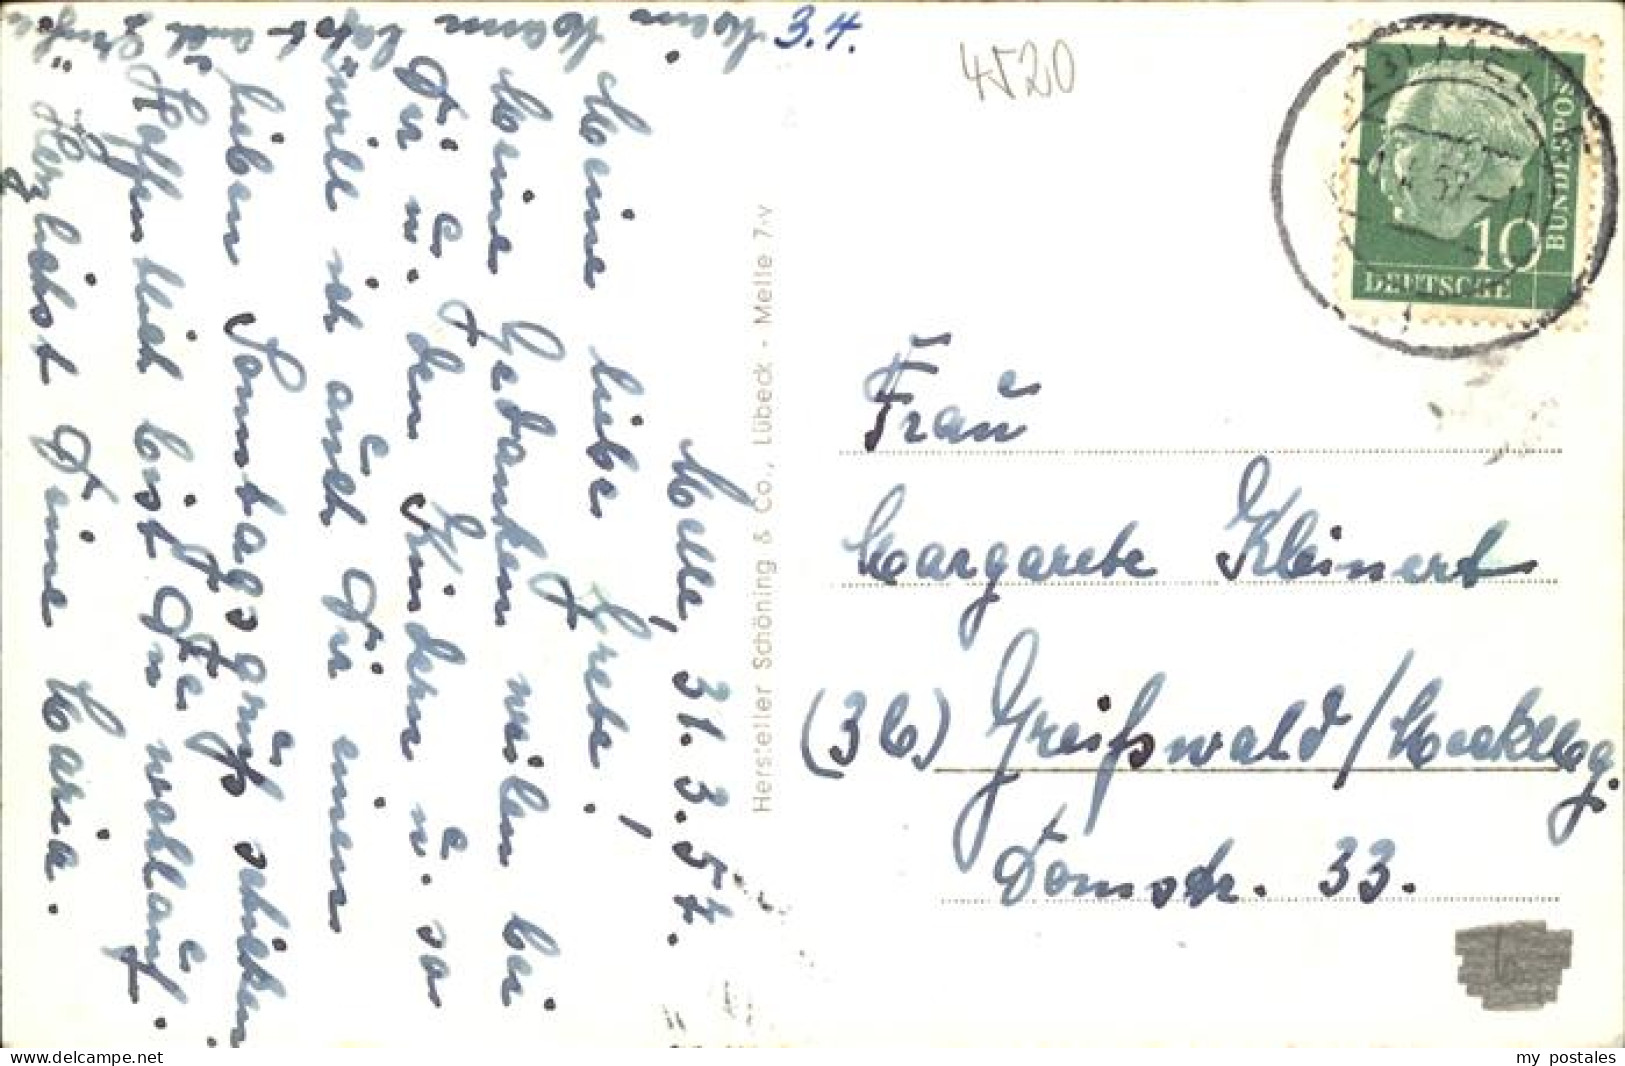 3.4.
4520
Melle, 31. 3. 57.
Meine liebe Grete!
Meine Gedanken weilen bei
Dir u. den Kindern u. so
will ich auch Dir einen
lieben Sonntagsgruß schicken
Hoffentlich bist Du wohlauf.
Herzlichst Deine Maria.
Mein Mann läßt auch grüßen
Hersteller Schöning & Co., Lübeck - Melle 7v
MELLE
57
10
DEUTSCHE
BUNDESPOST
Frau
Margarete Kleinert
(3b) Greifswald/Mecklbg.
Domstr. 33.
my postales